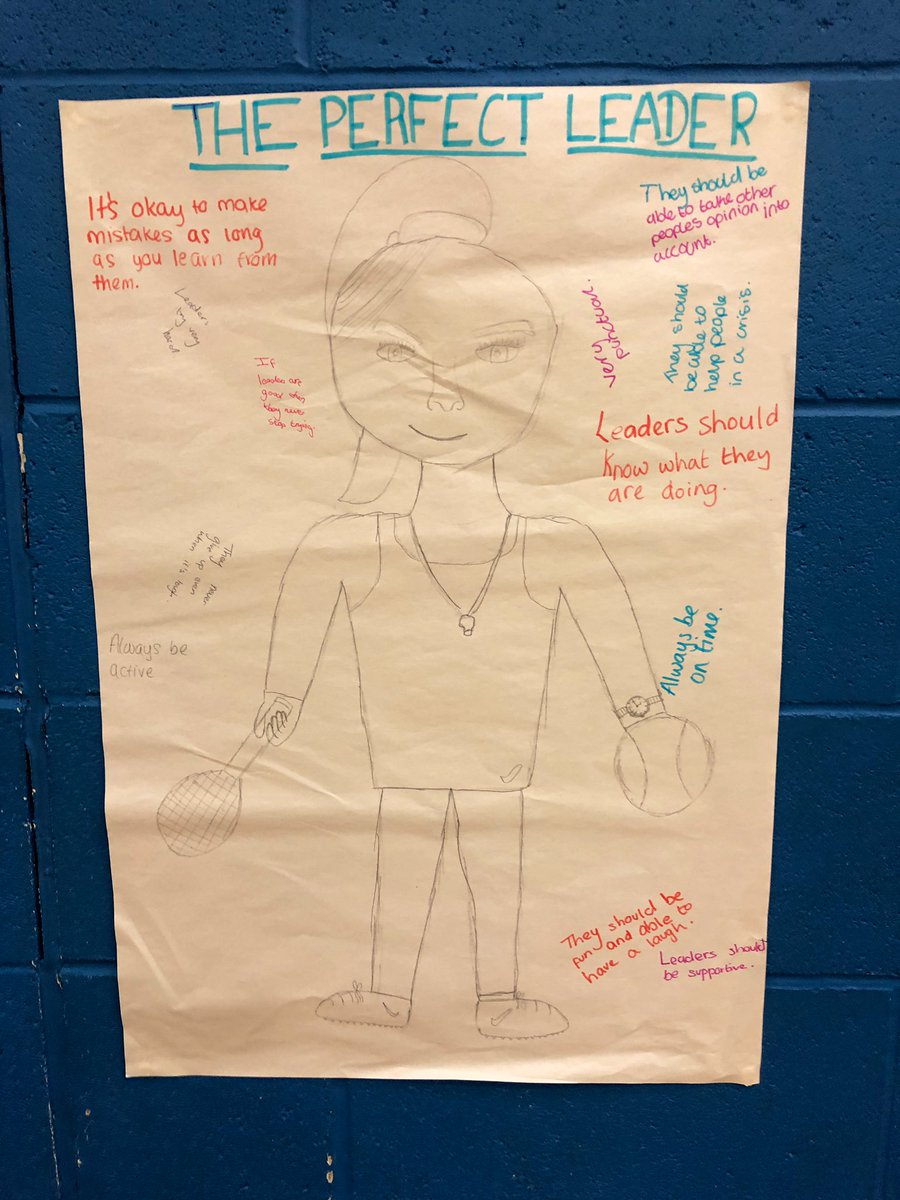 THE PERFECT LEADER
It's okay to make
mistakes as long
as you learn from
them.
Leaders
try very
hard
If
leaders are
good then
they never
stop trying.
They never
give up even
when it's tough.
Always be
active
They should be
able to take other
peoples opinion into
account.
very
punctual.
They should
be able to
help people
in a crisis.
Leaders should
know what they
are doing.
Always be
on time.
They should be
fun and able to
have a laugh.
Leaders should
be supportive.